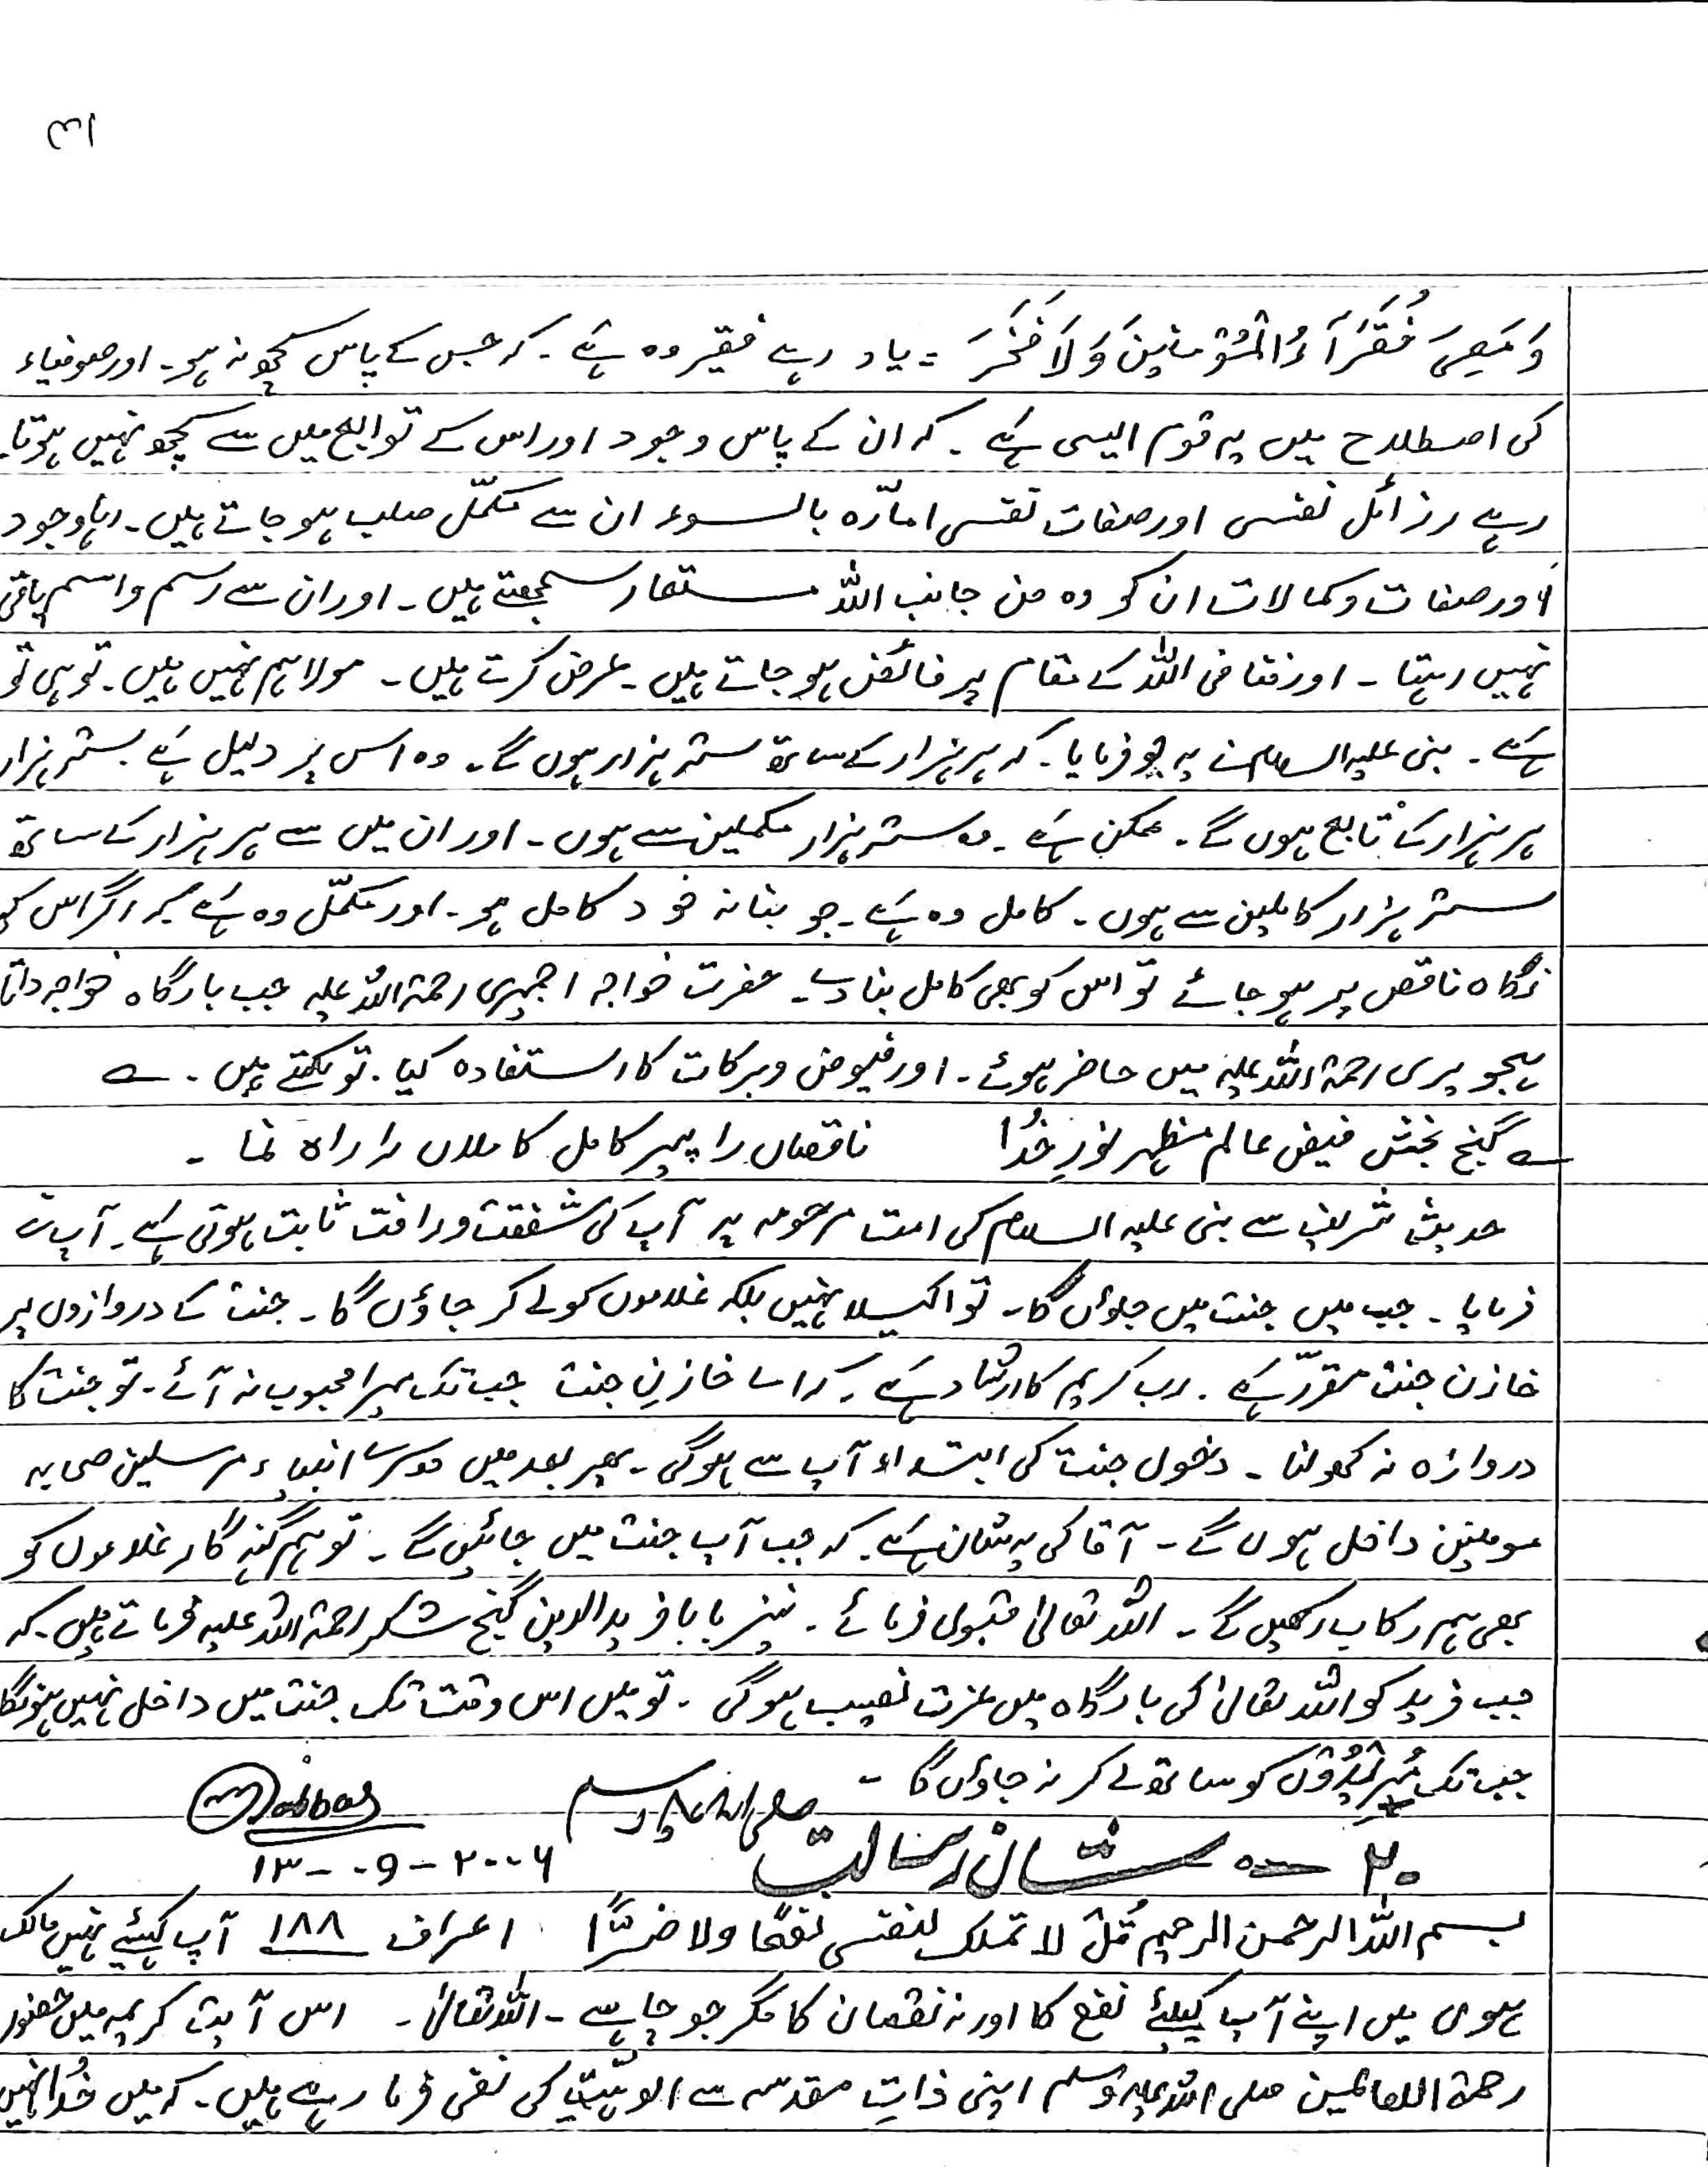 ۳۱
وَمَعِیَ فُقَرَآءُ الْمُؤْمِنِیْنَ وَلَا فَخَرَ ۔ یاد رہے فقیر وہ ہے ۔ کہ جس کے پاس کچھ نہ ہو ۔ اور صوفیاء
کی اصطلاح میں یہ قوم ایسی ہے ۔ کہ ان کے پاس وجود اور اس کے توابع میں سے کچھ نہیں ہوتا۔
رہے رزائل نفسی اور صفات نفسی امّارہ بالسوء ان سے مکمّل صلب ہو جاتے ہیں ۔ رہا وجود
اور صفات و کمالات ان کو وہ من جانب اللہ مستعار سمجھتے ہیں ۔ اور ان سے رسم و اسم باقی
نہیں رہتا ۔ اور فنا فی اللہ کے مقام پر فائض ہو جاتے ہیں ۔ عرض کرتے ہیں ۔ مولا ہم نہیں ہیں ۔ تو ہی تو
ہے ۔ نبی علیہ السلام نے یہ جو فرمایا ۔ کہ ہر ہزار کے ساتھ ستر ہزار ہوں گے ۔ وہ اس پر دلیل ہے ستر ہزار
ہر ہزار کے تابع ہوں گے ۔ ممکن ہے ۔ وہ ستر ہزار مکملین سے ہوں ۔ اور ان میں سے ہر ہزار کے ساتھ
ستر ہزار کاملین سے ہوں ۔ کامل وہ ہے ۔ جو بنانہ خود کامل ہو ۔ اور مکمّل وہ ہے کہ اگر اس کی
نگاہ ناقص پر ہو جائے تو اس کو بھی کامل بنا دے ۔ حضرت خواجہ اجمیری رحمۃ اللہ علیہ جب بارگاہ خواجہ داتا
ہجویری رحمۃ اللہ علیہ میں حاضر ہوئے ۔ اور فیوض و برکات کا استفادہ کیا ۔ تو کہتے ہیں ۔ ؎
؎ گنج بخش فیض عالم مظہر نورِ خُدا ناقصاں را پیر کامل کاملاں را راہ نما ۔
حدیث شریف سے نبی علیہ السلام کی امت مرحومہ پر آپ کی شفقت و رافت ثابت ہوتی ہے ۔ آپ نے
فرمایا ۔ جب میں جنت میں جاؤں گا ۔ تو اکیلا نہیں بلکہ غلاموں کو لے کر جاؤں گا ۔ جنت کے دروازوں پر
خازن جنت مقرّر ہے ۔ رب کریم کا ارشاد ہے ۔ کہ اے خازنِ جنت جب تک میرا محبوب نہ آئے ۔ تو جنت کا
دروازہ نہ کھولنا ۔ دخول جنت کی ابتداء آپ سے ہوگی ۔ پھر بعد میں دوسرے انبیاء مرسلین صحابہ
مومنین داخل ہوں گے ۔ آقا کی یہ شان ہے ۔ کہ جب آپ جنت میں جائیں گے ۔ تو ہم گنہگار غلاموں کو
بھی ہم رکاب رکھیں گے ۔ اللہ تعالیٰ قبول فرمائے ۔ نیز بابا فریدالدین گنج شکر رحمۃ اللہ علیہ فرماتے ہیں ۔ کہ
جب فرید کو اللہ تعالیٰ کی بارگاہ میں عزت نصیب ہوگی ۔ تو میں اس وقت تک جنت میں داخل نہیں ہونگا
جب تک مُریدُوں کو ساتھ لے کر نہ جاؤں گا ۔
۲۰ ــ شان رسالت صلی اللہ علیہ وسلم
۱۳-۰۹-۲۰۰۶
بسم اللہ الرحمن الرحیم قُلْ لا تملک لنفسی نفعًا ولا ضرًّا اعراف ۱۸۸ آپ کہیئے نہیں مالک
ہوں میں اپنے آپ کیلئے نفع کا اور نہ نقصان کا مگر جو چاہے ۔ اللہ تعالیٰ ۔ اس آیت کریمہ میں حضور
رحمۃ اللعالمین صلی اللہ علیہ وسلم اپنی ذاتِ مقدسہ سے الوہیّت کی نفی فرما رہے ہیں ۔ کہ میں خُدا نہیں